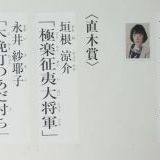 〈直木賞〉
垣根 涼介
「極楽征夷大将軍」
永井 紗耶子
「木挽町のあだ討ち